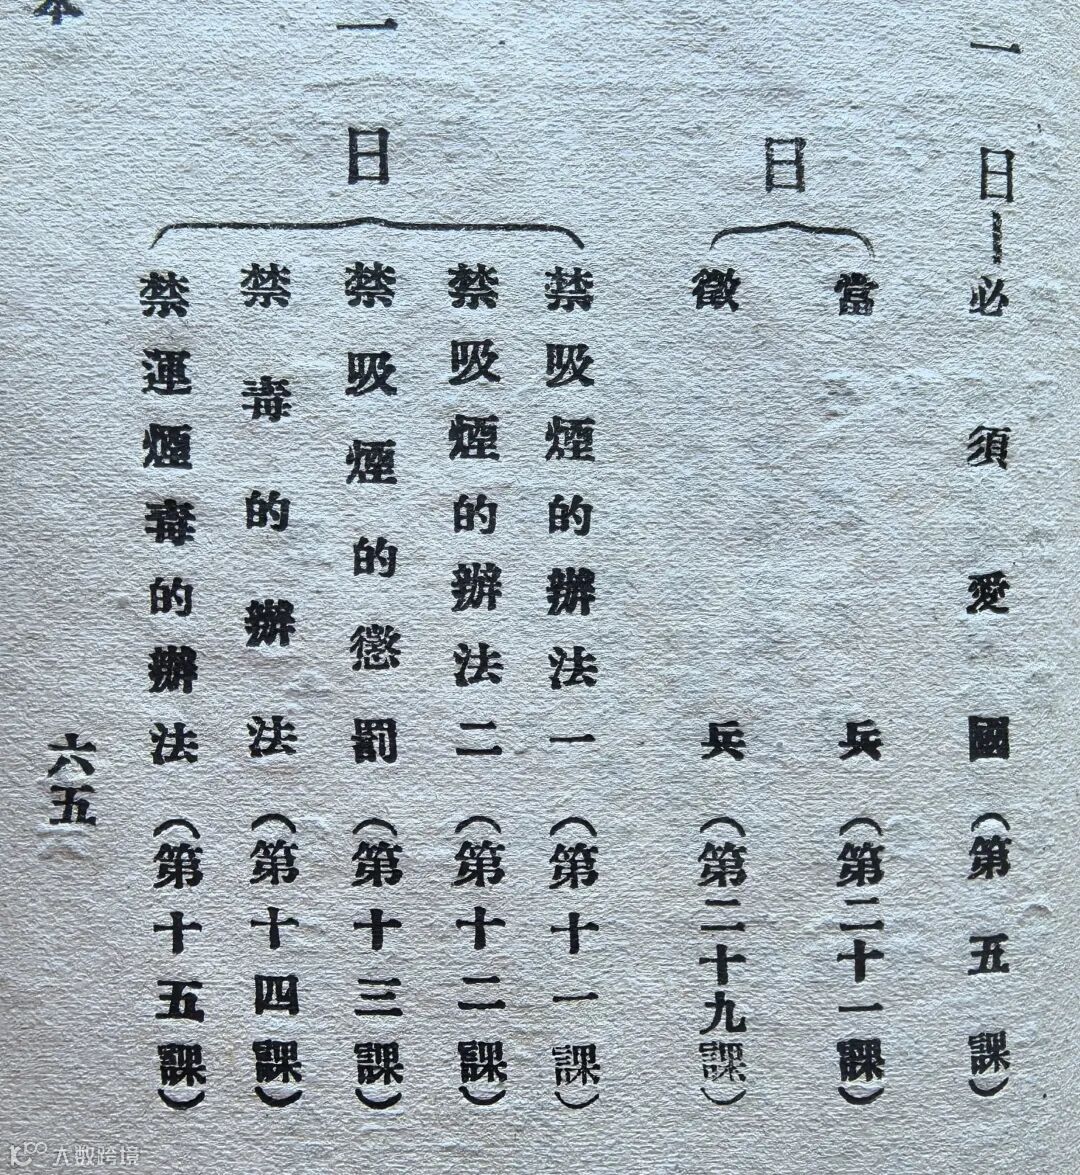 一日—必須愛國（第五課）
日
當兵（第二十一課）
徵兵（第二十九課）
一日
禁吸煙的辦法一（第十一課）
禁吸煙的辦法二（第十二課）
禁吸煙的懲罰（第十三課）
禁毒的辦法（第十四課）
禁運煙毒的辦法（第十五課）
本
六五
大数跨境